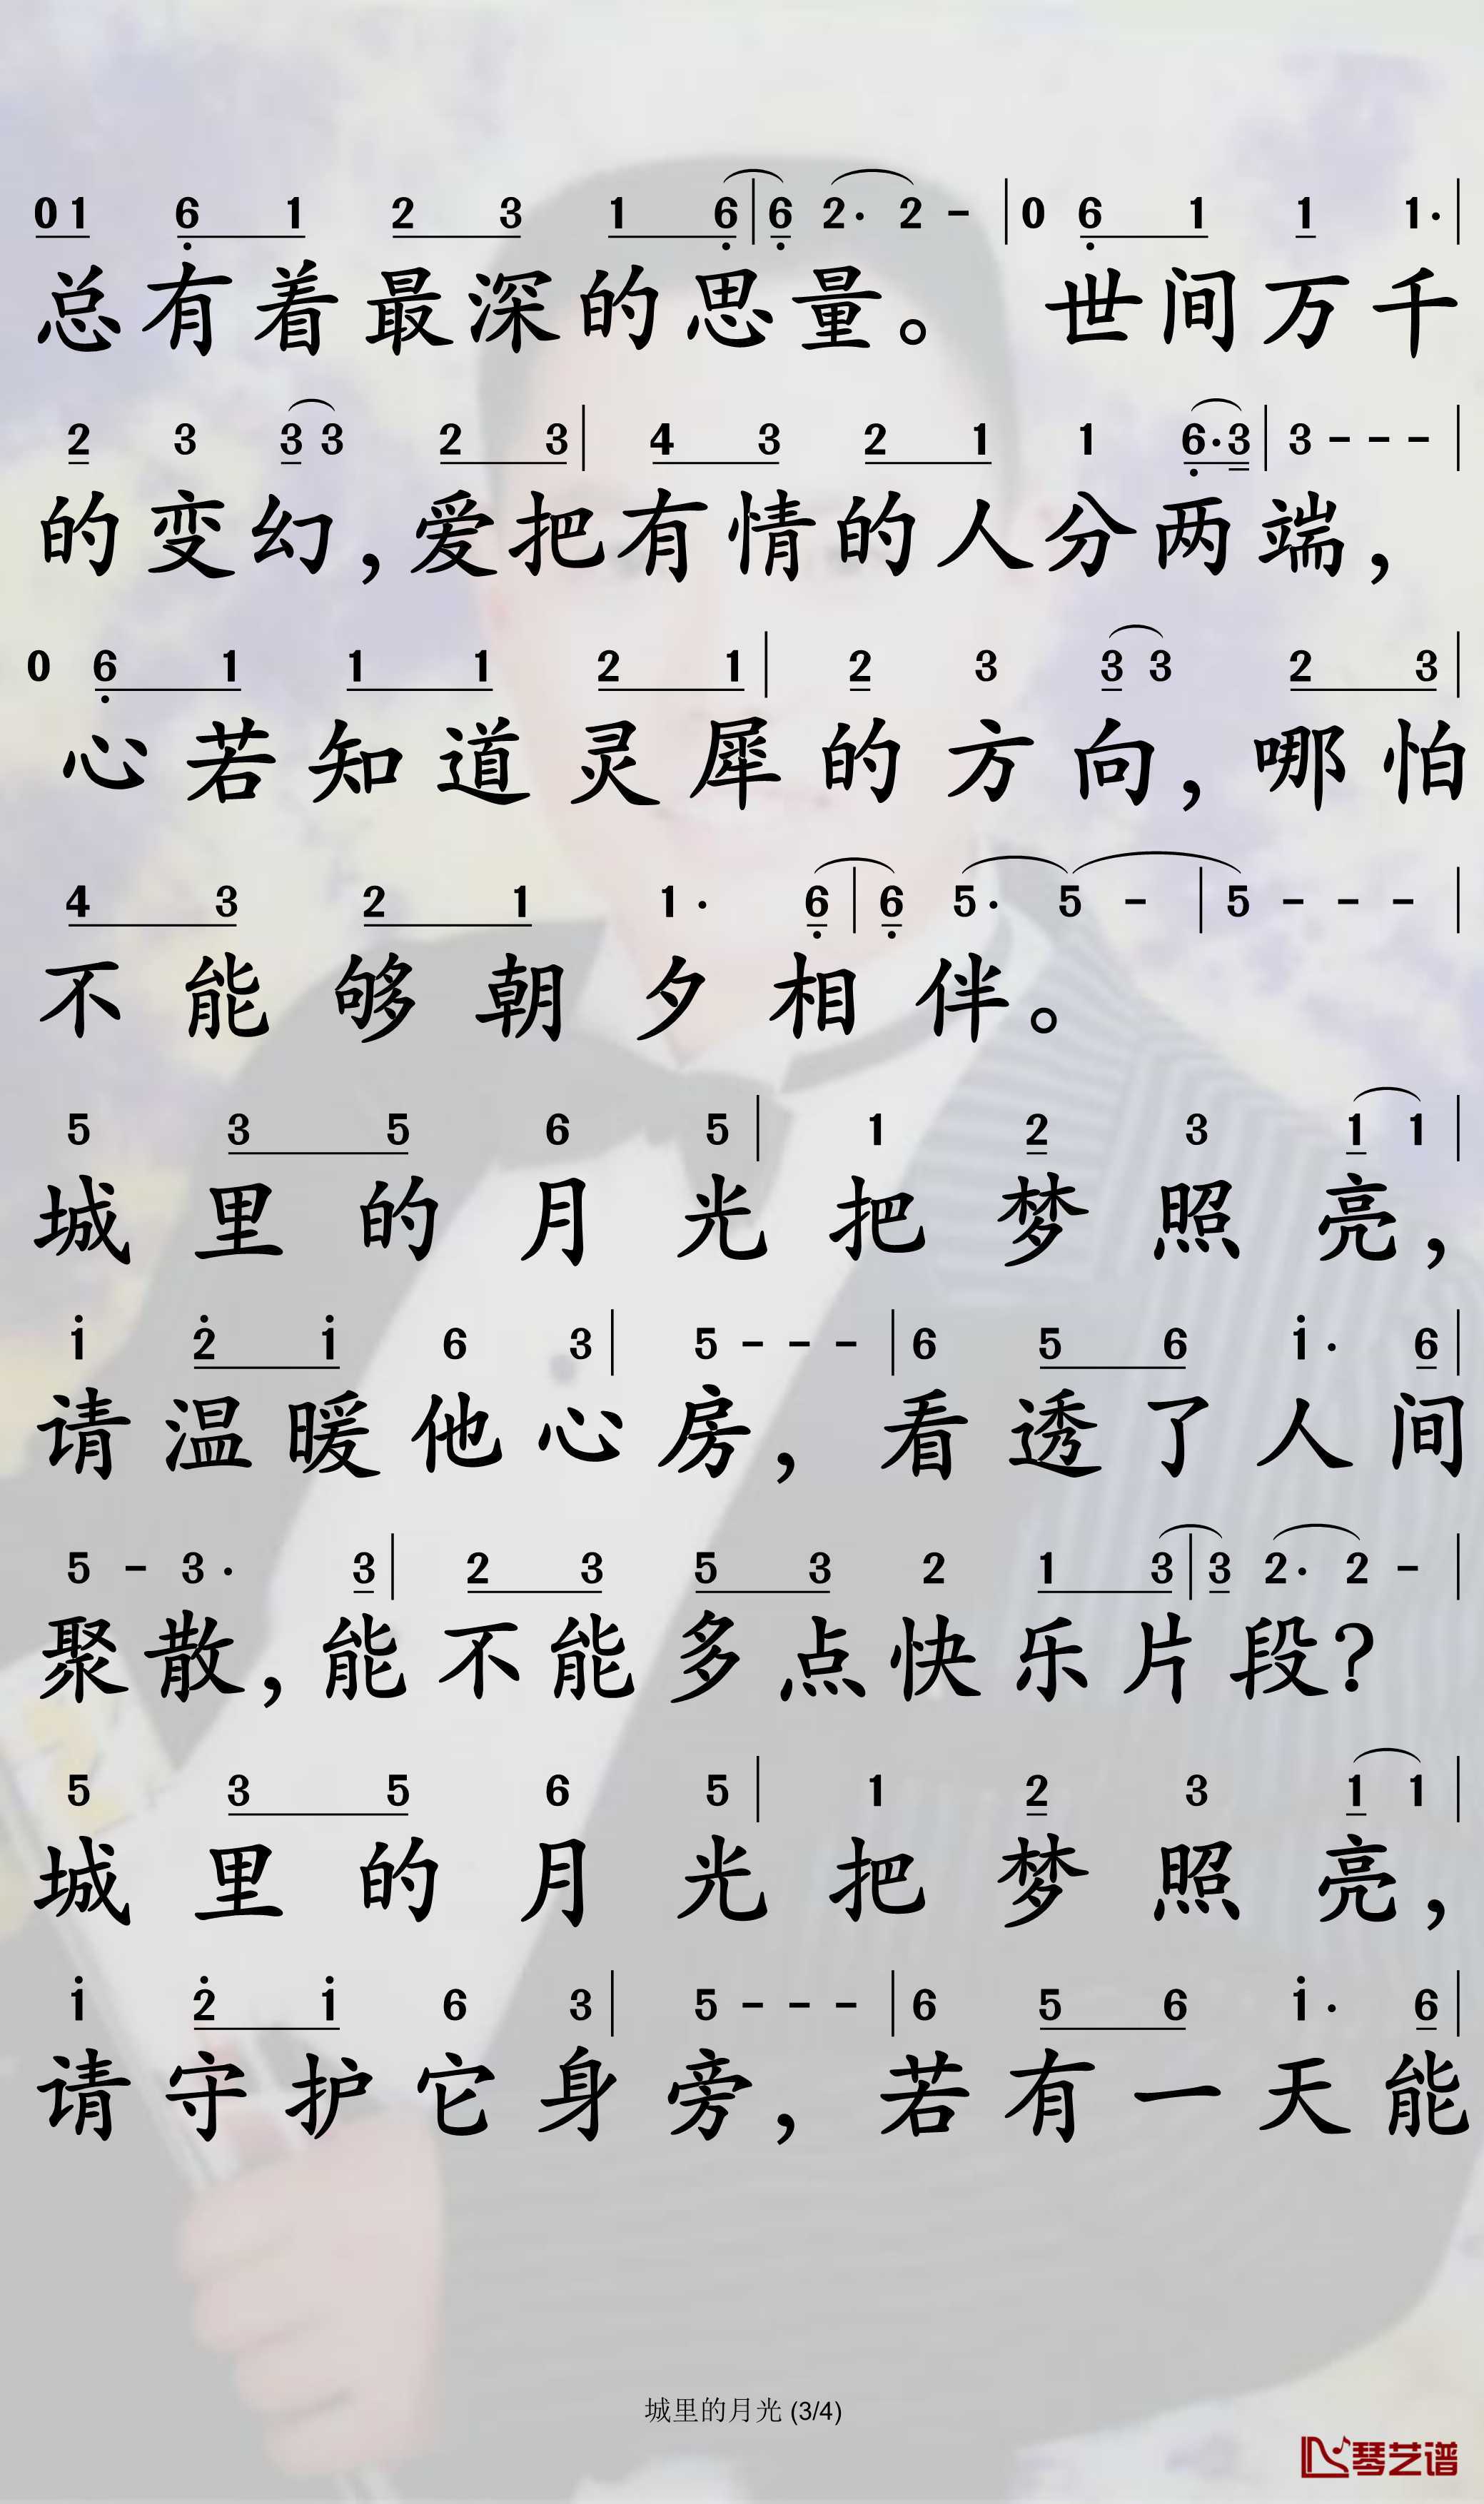 0 1 6 1 2 3 1 6 | 6 2· 2 - | 0 6 1 1 1· |
总有着最深的思量。 世间万千
2 3 3 3 2 3 | 4 3 2 1 1 6·3 | 3 - - - |
的变幻，爱把有情的人分两端，
0 6 1 1 1 2 1 | 2 3 3 3 2 3 |
心若知道灵犀的方向，哪怕
4 3 2 1 1· 6 | 6 5· 5 - | 5 - - - |
不能够朝夕相伴。
5 3 5 6 5 | 1 2 3 1 1 |
城里的月光把梦照亮，
1 2 1 6 3 | 5 - - - | 6 5 6 1· 6 |
请温暖他心房，看透了人间
5 - 3· 3 | 2 3 5 3 2 1 3 | 3 2· 2 - |
聚散，能不能多点快乐片段？
5 3 5 6 5 | 1 2 3 1 1 |
城里的月光把梦照亮，
1 2 1 6 3 | 5 - - - | 6 5 6 1· 6 |
请守护它身旁，若有一天能
城里的月光 (3/4)
琴艺谱